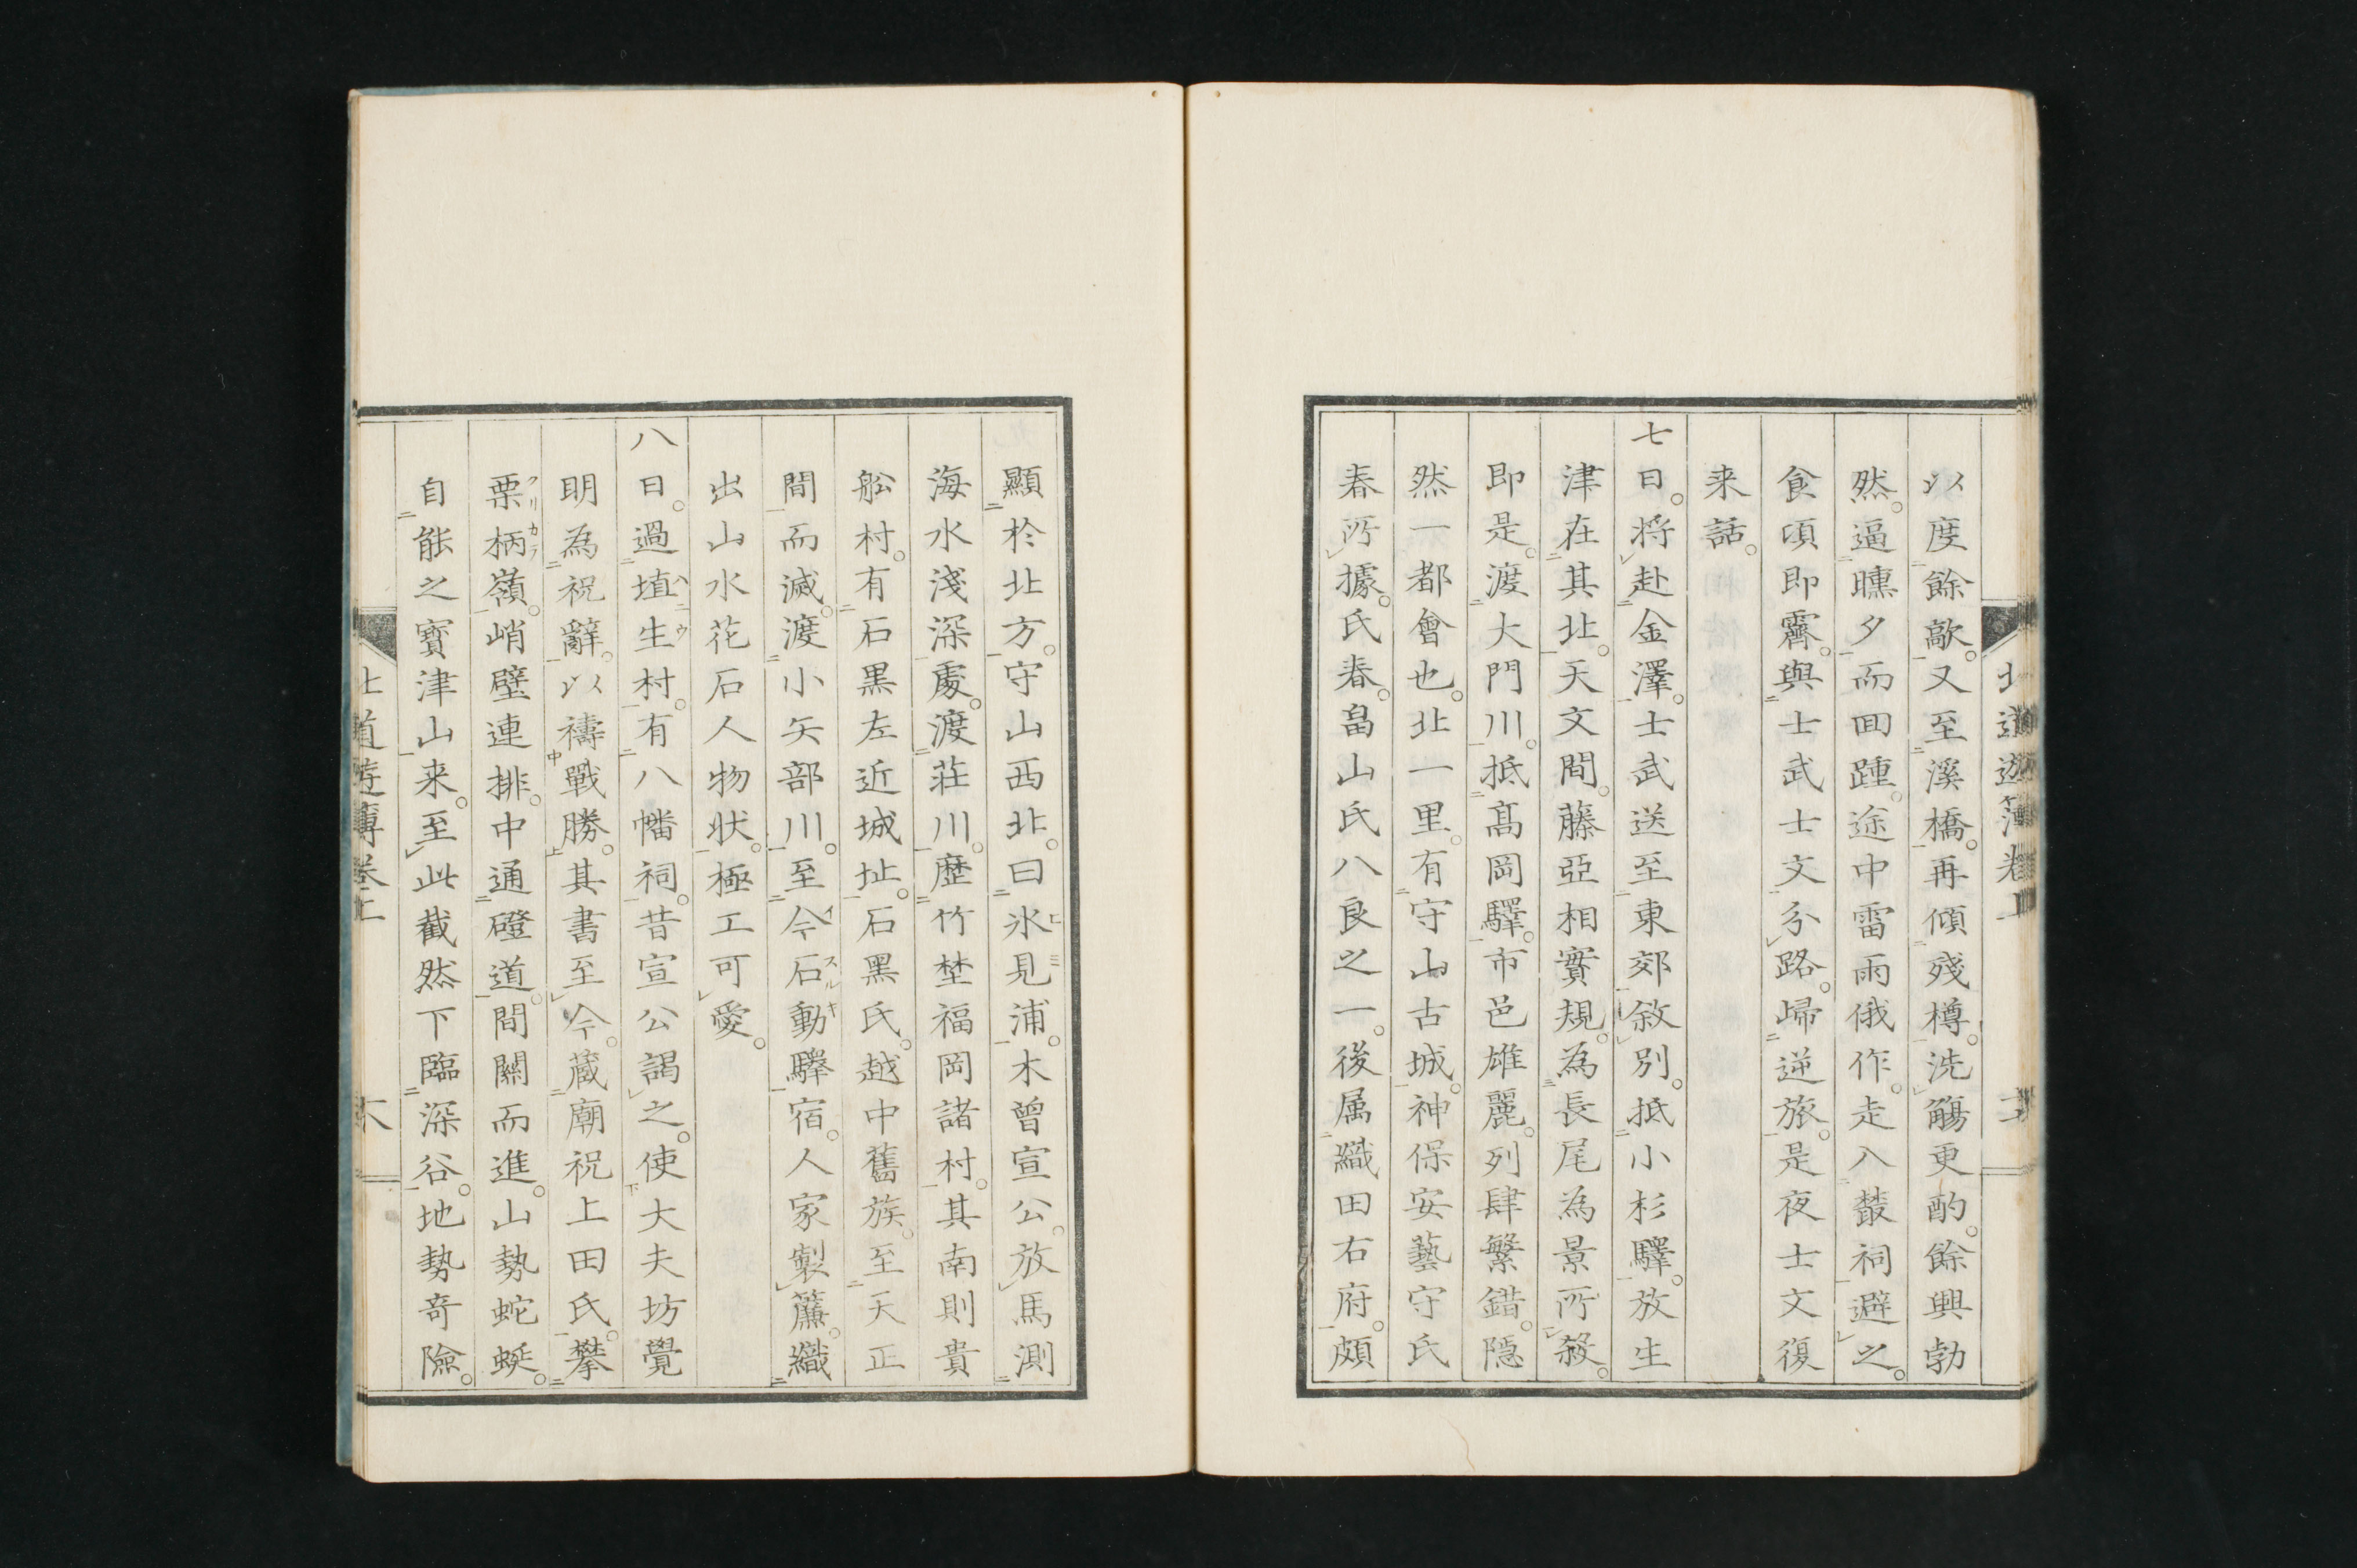 以度餘歊。又至溪橋。再傾殘樽。洗觴更酌。餘興勃
然。逼曛夕而回踵。途中雷雨俄作。走入叢祠避之。
食頃即霽。與士武士文分路。歸逆旅。是夜士文復
来話。
七日。将赴金澤。士武送至東郊敘別。抵小杉驛。放生
津在其北。天文間。藤亞相實規。為長尾為景所殺。
即是。渡大門川。抵髙岡驛。市邑雄麗。列肆繁錯。隱
然一都會也。北一里。有守山古城。神保安藝守氏
春所據。氏春。畠山氏八良之一。後属織田右府。頗
顯於北方。守山西北。曰氷見浦。木曾宣公。放馬測
海水淺深處。渡荘川。歴竹埜福岡諸村。其南則貴
舩村。有石黒左近城址。石黑氏。越中舊族。至天正
間而滅。渡小矢部川。至今石動驛宿。人家製簾。織
出山水花石人物状。極工可愛。
八日。過埴生村。有八幡祠。昔宣公謁之。使大夫坊覺
明為祝辭。以禱戰勝。其書至今藏廟祝上田氏。攀
栗柄嶺。峭壁連排。中通磴道。間關而進。山勢蛇蜒。
自能之寳津山来。至此截然下臨深谷。地勢奇險。
北道遊簿卷上